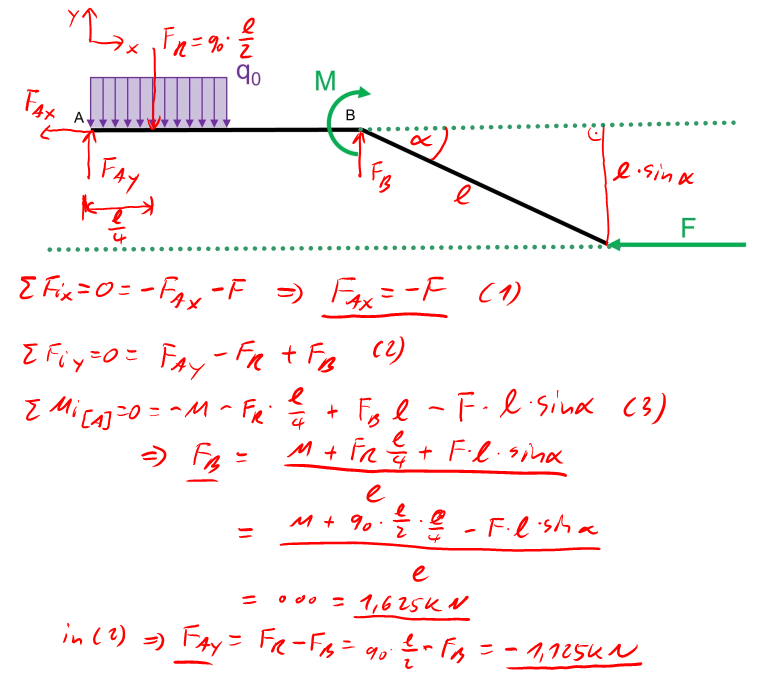 Y
x
F_R = q_0 · ℓ/2
q_0
M
F_Ax
A
B
α
F_Ay
F_B
ℓ
ℓ · sin α
ℓ/4
F
Σ F_ix = 0 = -F_Ax - F ⇒ F_Ax = -F (1)
Σ F_iy = 0 = F_Ay - F_R + F_B (2)
Σ M_i[A] = 0 = -M - F_R · ℓ/4 + F_B ℓ - F · ℓ · sin α (3)
⇒ F_B = (M + F_R ℓ/4 + F · ℓ · sin α) / ℓ
= (M + q_0 · ℓ/2 · ℓ/4 - F · ℓ · sin α) / ℓ
= ... = 1,625 kN
in (2) ⇒ F_Ay = F_R - F_B = q_0 · ℓ/2 - F_B = -1,125 kN